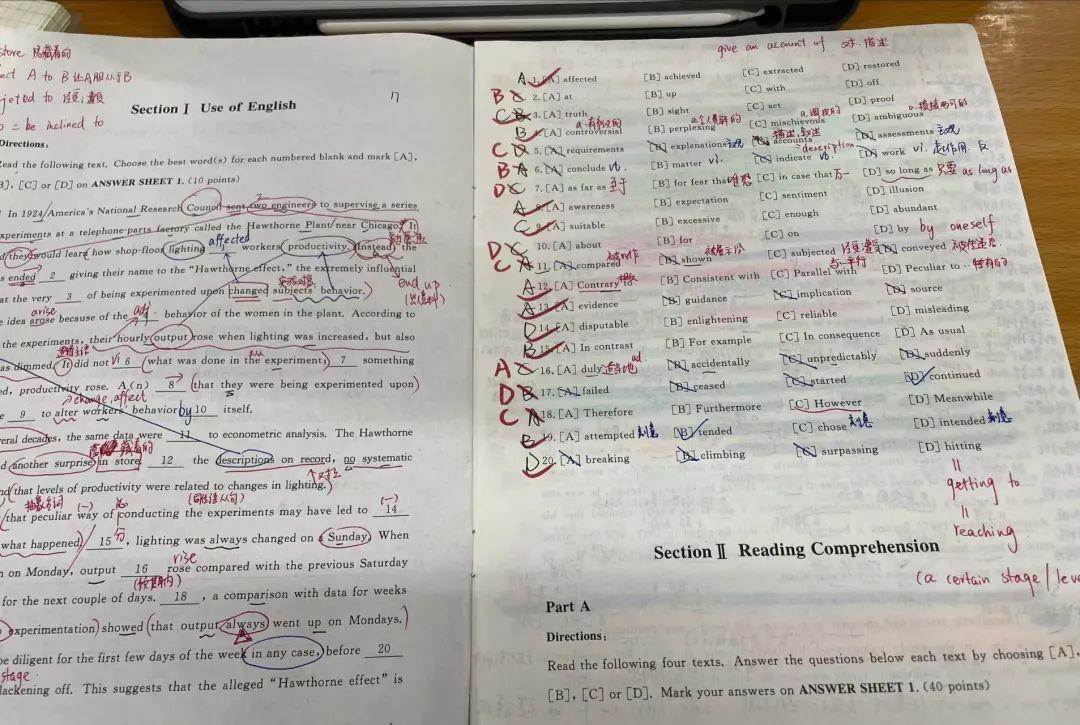 store 贮藏着的
ect A to B 让A服从于B
jected to 经受;遭受
= be inclined to
17
Section Ⅰ Use of English
Directions:
Read the following text. Choose the best word(s) for each numbered blank and mark [A],
B], [C] or [D] on ANSWER SHEET 1. (10 points)
In 1924 America's National Research Council sent two engineers to supervise a series
xperiments at a telephone-parts factory called the Hawthorne Plant near Chicago. It
d they would learn how shop-floor lighting affected workers productivity. Instead, the
s ended 2 giving their name to the "Hawthorne effect," the extremely influential
end up
at the very 3 of being experimented upon changed subjects' behavior.)
arise adj
e idea arose because of the behavior of the women in the plant. According to
the experiments, their hourly output rose when lighting was increased, but also
as dimmed. It did not vi 6 (what was done in the experiment;) 7 something
ed, productivity rose. A(n) 8 (that they were being experimented upon)
change, affect
e 9 to alter workers' behavior by 10 itself.
eral decades, the same data were 11 to econometric analysis. The Hawthorne
d another surprise in store 12 the descriptions on record, no systematic
nd (that levels of productivity were related to changes in lighting.)
抽象名词 (一) (同位语从句) (一)
(that peculiar way of conducting the experiments may have led to 14
what happened) 15 , lighting was always changed on a Sunday. When
rise
n on Monday, output 16 rose compared with the previous Saturday
for the next couple of days. 18 , a comparison with data for weeks
experimentation) showed (that output always went up on Mondays.)
be diligent for the first few days of the week in any case, before 20
stage
lackening off. This suggests that the alleged "Hawthorne effect" is
give an account of 对…描述
A 1. [A] affected [B] achieved [C] extracted [D] restored
B 2. [A] at [B] up [C] with [D] off
C B 3. [A] truth [B] sight [C] act [D] proof
B 4. [A] controversial [B] perplexing [C] mischievous [D] ambiguous
C 5. [A] requirements [B] explanations [C] accounts [D] assessments
description
B A 6. [A] conclude vi. [B] matter vi. [C] indicate vt. [D] work vi. 起作用
D C 7. [A] as far as 至于 [B] for fear that 唯恐 [C] in case that 万一 [D] so long as 只要 as long as
A 8. [A] awareness [B] expectation [C] sentiment [D] illusion
C 9. [A] suitable [B] excessive [C] enough [D] abundant
D 10. [A] about [B] for [C] on [D] by by oneself
C A 11. [A] compared [B] shown [C] subjected [D] conveyed
A 12. [A] Contrary [B] Consistent with [C] Parallel with [D] Peculiar to
A 13. [A] evidence [B] guidance [C] implication [D] source
D 14. [A] disputable [B] enlightening [C] reliable [D] misleading
B 15. [A] In contrast [B] For example [C] In consequence [D] As usual
A 16. [A] duly 适当地 ad. [B] accidentally [C] unpredictably [D] suddenly
D B 17. [A] failed [B] ceased [C] started [D] continued
C A 18. [A] Therefore [B] Furthermore [C] However [D] Meanwhile
B 19. [A] attempted [B] tended [C] chose [D] intended
D 20. [A] breaking [B] climbing [C] surpassing [D] hitting
=
getting to
=
reaching
(a certain stage/leve
Section Ⅱ Reading Comprehension
Part A
Directions:
Read the following four texts. Answer the questions below each text by choosing [A],
[B], [C] or [D]. Mark your answers on ANSWER SHEET 1. (40 points)